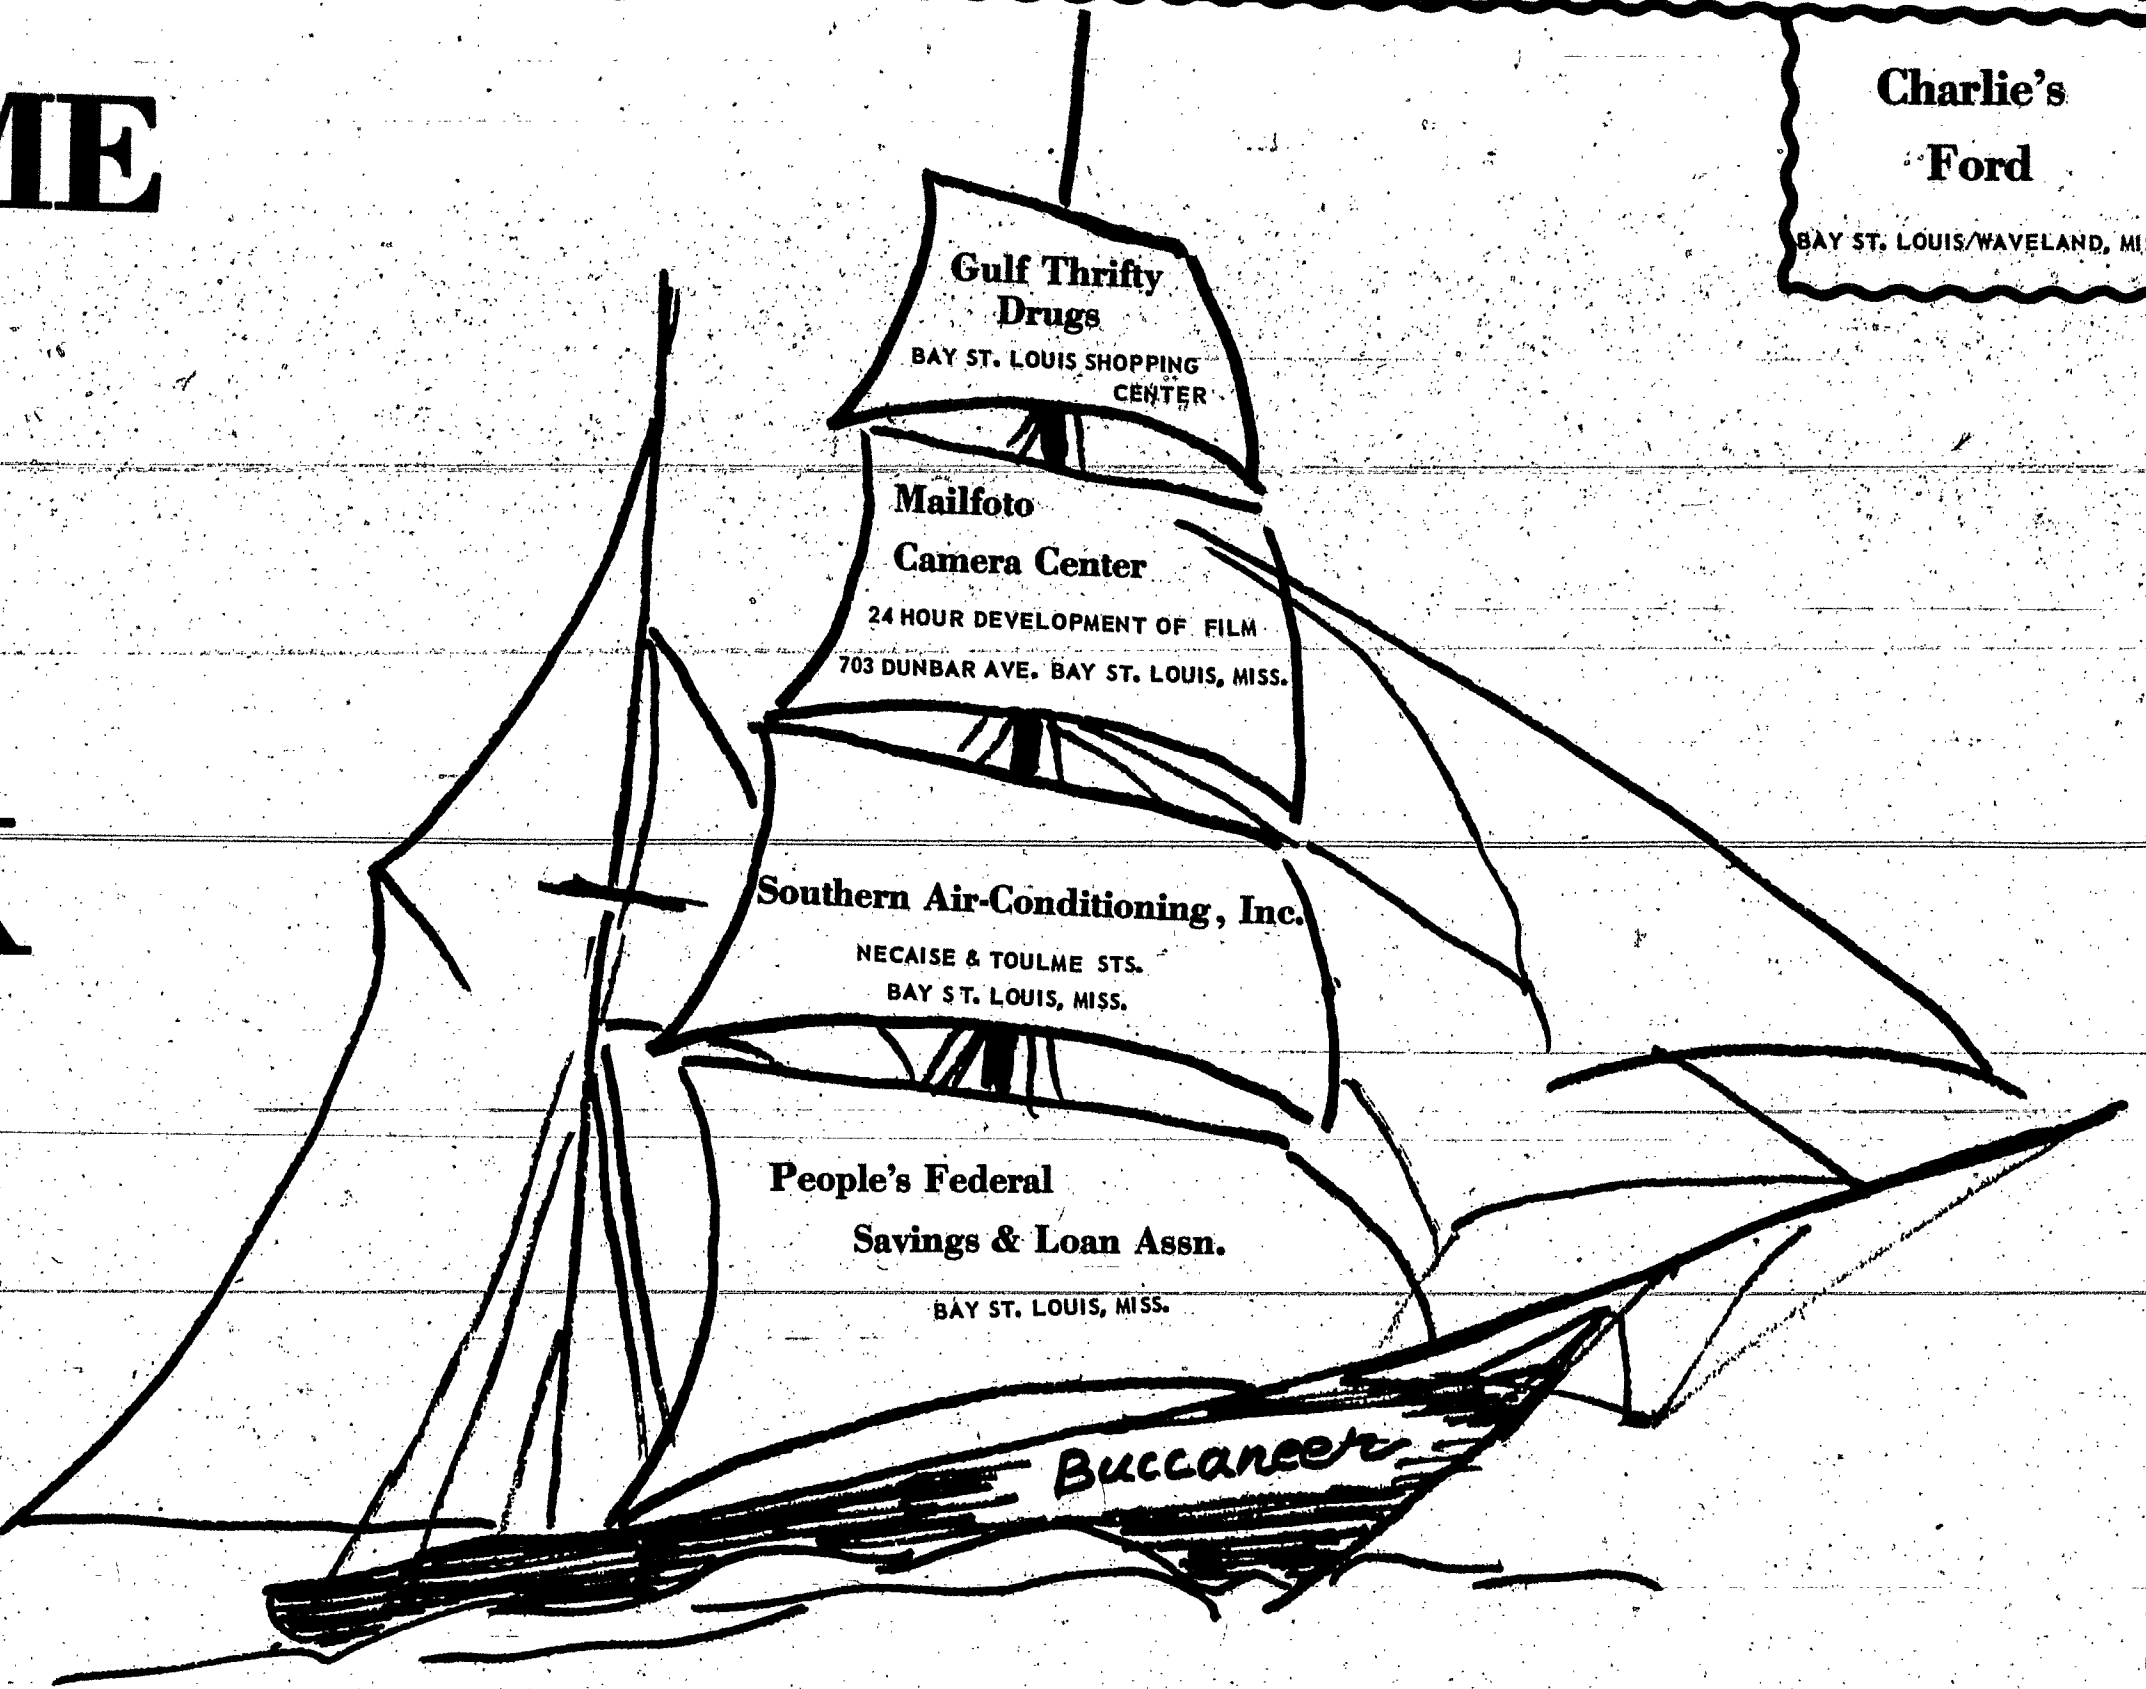 ME
Charlie's
Ford
BAY ST. LOUIS/WAVELAND,
Gulf Thrifty
Drugs
BAY ST. LOUIS SHOPPING
CENTER
Mailfoto
Camera Center
24 HOUR DEVELOPMENT OF FILM
703 DUNBAR AVE. BAY ST. LOUIS, MISS.
Southern Air-Conditioning, Inc.
NECAISE & TOULME STS.
BAY ST. LOUIS, MISS.
People's Federal
Savings & Loan Assn.
BAY ST. LOUIS, MISS.
Buccaneer